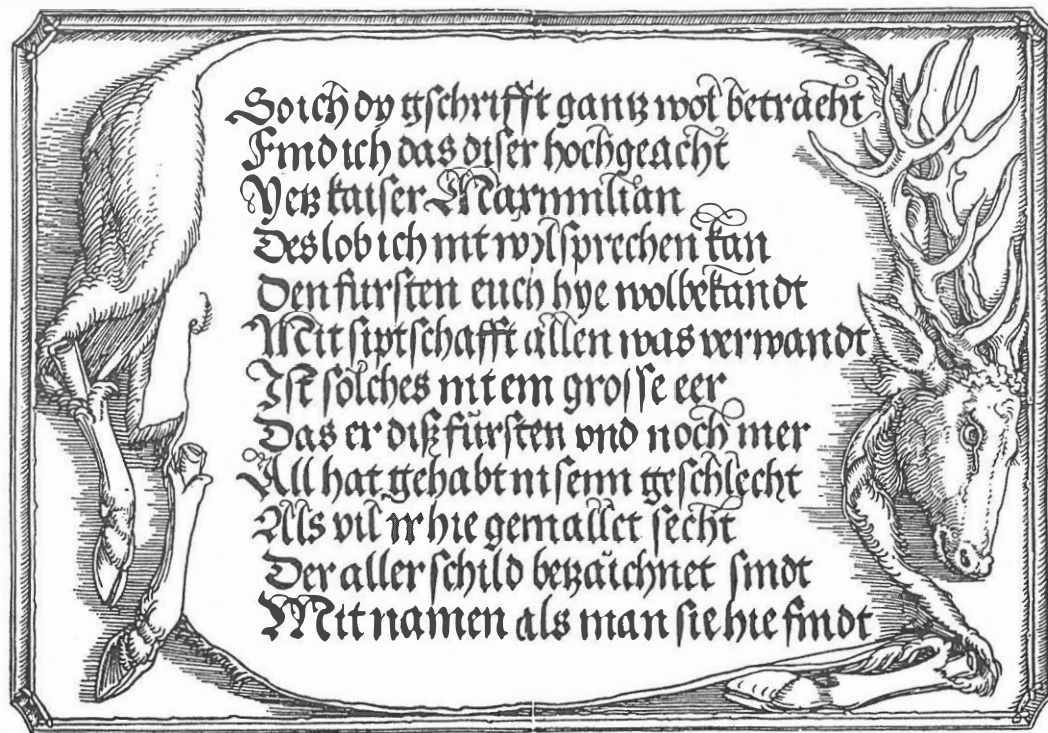 So ich dy gschrifft gantz wol betracht
Find ich das diser hochgeacht
Yetz kaiser Maximilian
Des lob ich nit wol sprechen kan
Den fursten euch hye wolbekandt
Mit siptschafft allen was verwandt
Ist solches nit ein grosse eer
Das er diß fürsten vnd noch mer
All hat gehabt in seim geschlecht
Als vil ir hie gemallet secht
Der aller schild betzaichnet sindt
Mit namen als man sie hie findt